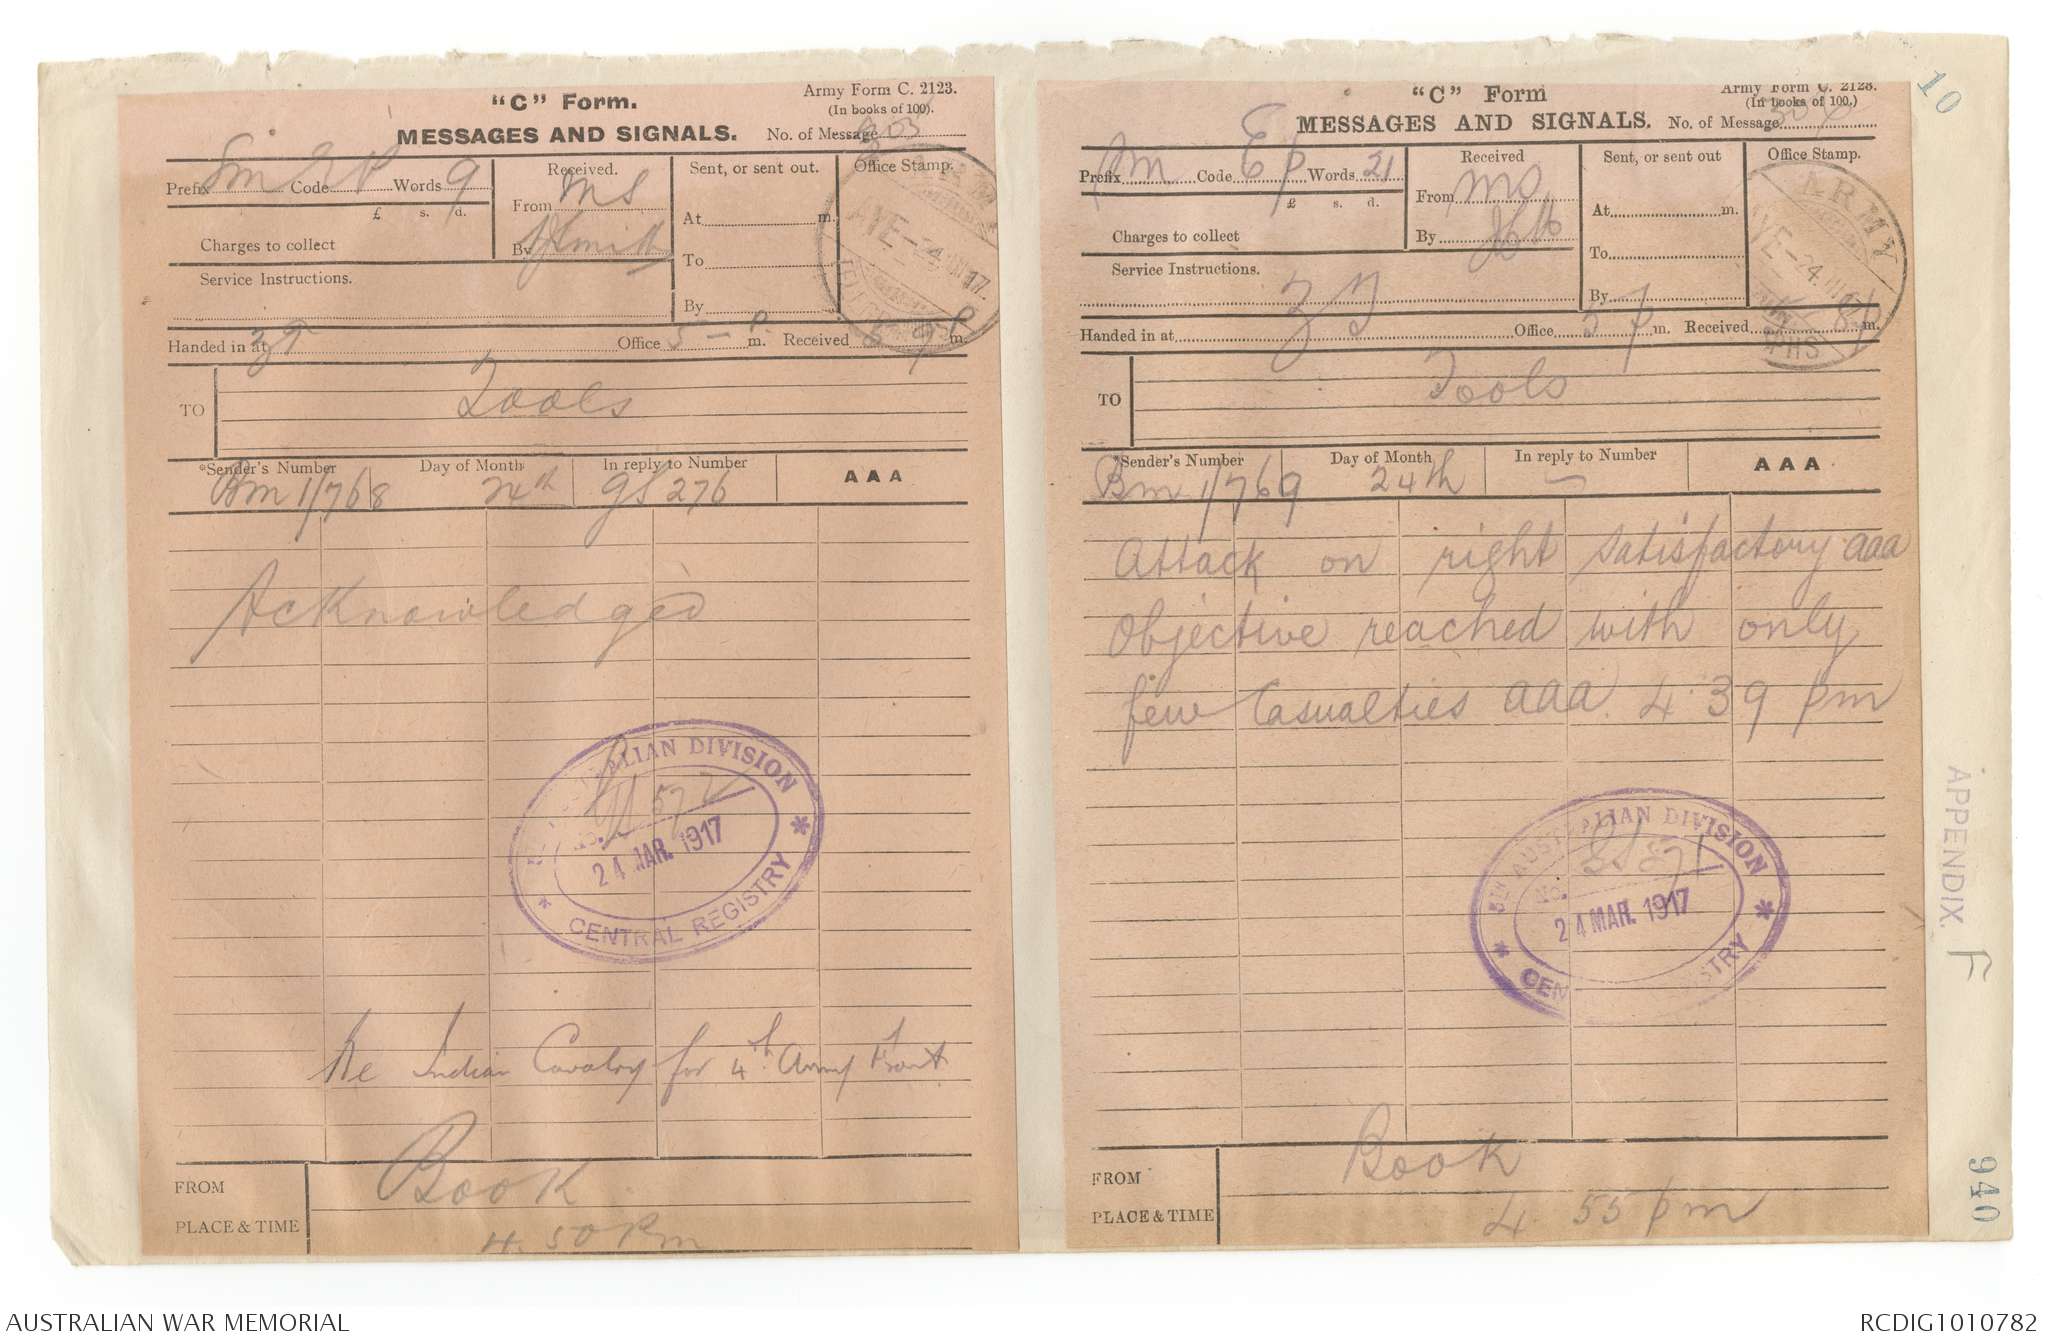 "C" Form.
Army Form C. 2123.
(In books of 100).
MESSAGES AND SIGNALS. No. of Message
Prefix Sm Code Words 9
£ s. d.
Charges to collect
Service Instructions.
Received.
From MS
By
Sent, or sent out.
At m.
To
By
Office Stamp.
ARMY
24.III.17.
Handed in at Office 5 - P. m. Received 5 9 P m.
TO Tools
*Sender's Number Day of Month In reply to Number AAA
Bm 1/768 24th GS 276
Acknowledged
AUSTRALIAN DIVISION
No.
24 MAR. 1917
CENTRAL REGISTRY
Re Indian Cavalry for 4th Army Front
FROM Book
PLACE & TIME 4.50 Pm
"C" Form
Army Form C. 2123.
(In books of 100.)
MESSAGES AND SIGNALS. No. of Message
Prefix Sm Code EP Words 21
£ s. d.
Charges to collect
Service Instructions.
Received
From MS
By
Sent, or sent out
At m.
To
By
Office Stamp.
ARMY
24.III
Handed in at Office 5 P m. Received 8P m.
TO Tools
*Sender's Number Day of Month In reply to Number AAA
Bm 1/769 24th —
Attack on right satisfactory aaa
Objective reached with only
few Casualties aaa 4.39 pm
5TH AUSTRALIAN DIVISION
No.
24 MAR. 1917
CENTRAL REGISTRY
FROM Book
PLACE & TIME 4 55 pm
10
APPENDIX. F
940
AUSTRALIAN WAR MEMORIAL
RCDIG1010782